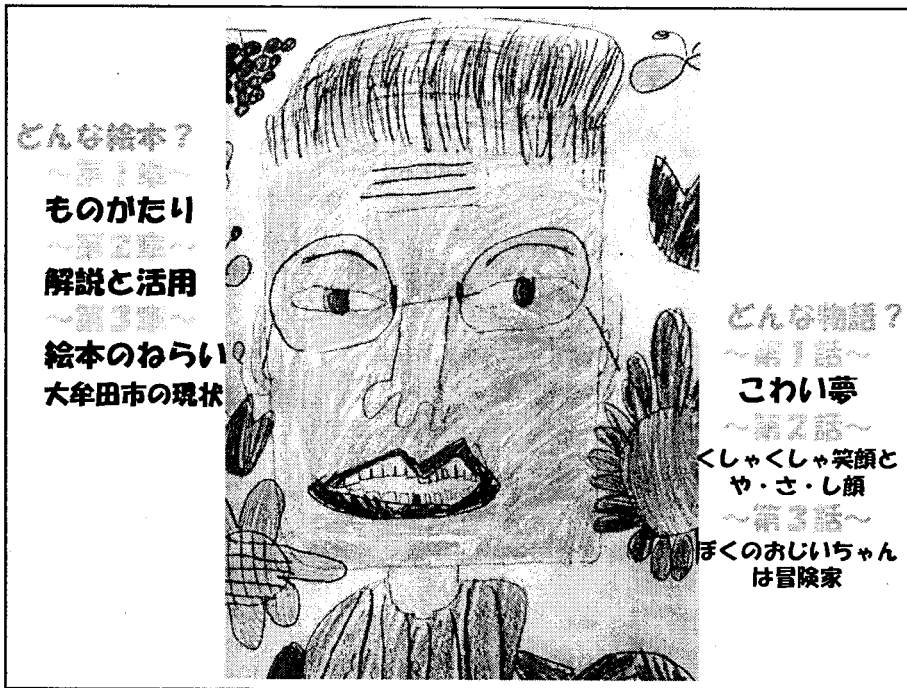 どんな絵本？
～第１章～
ものがたり
～第２章～
解説と活用
～第３章～
絵本のねらい
大牟田市の現状
どんな物語？
～第１話～
こわい夢
～第２話～
くしゃくしゃ笑顔と
や・さ・し顔
～第３話～
ぼくのおじいちゃん
は冒険家